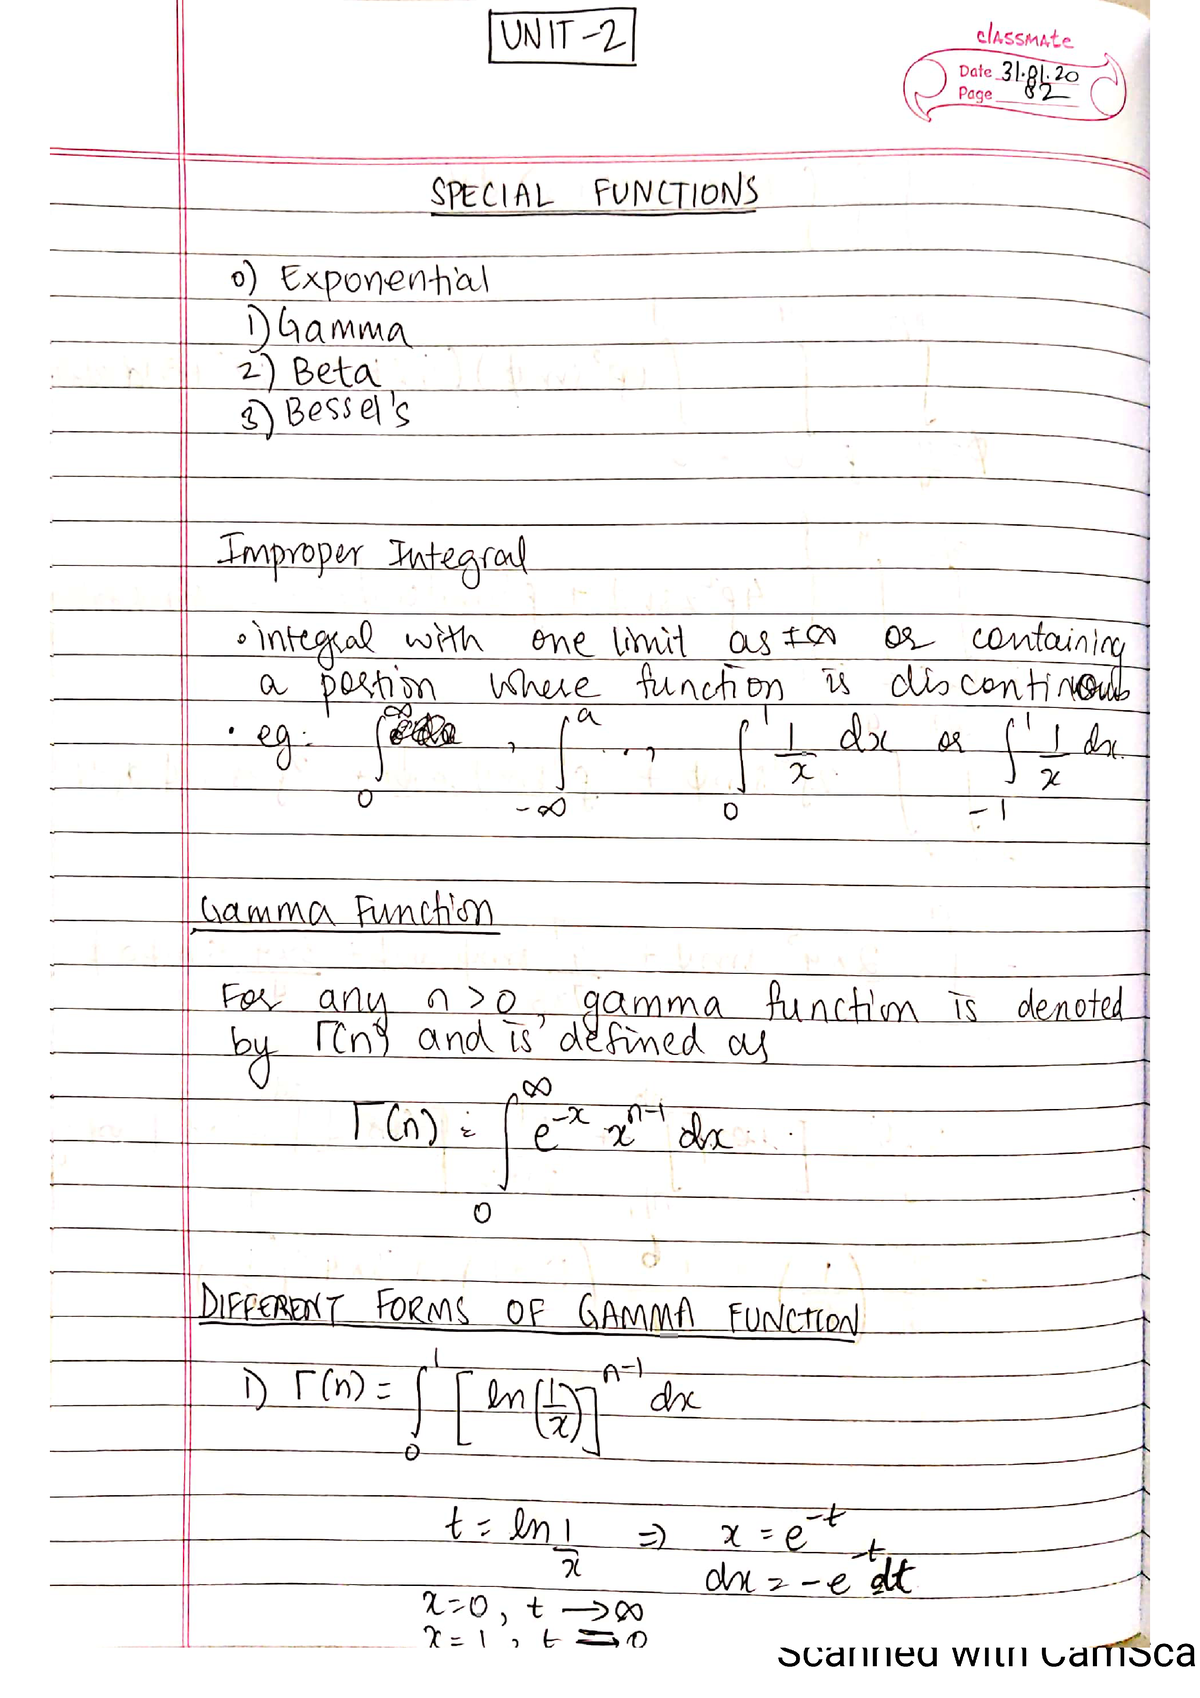 UNIT-2
classmate
Date 31.01.20
Page 82
SPECIAL FUNCTIONS
0) Exponential
1) Gamma
2) Beta
3) Bessel's
Improper Integral
• integral with one limit as ±∞ or containing
a portion where function is discontinous
• eg: ∫₀^∞ , ∫_{-∞}^a .., ∫₀^1 1/x dx or ∫_{-1}^1 1/x dx.
Gamma Function
For any n>0, gamma function is denoted
by Γ(n) and is defined as
Γ(n) = ∫₀^∞ e^{-x} x^{n-1} dx
DIFFERENT FORMS OF GAMMA FUNCTION
1) Γ(n) = ∫₀^1 [ln(1/x)]^{n-1} dx
t = ln 1/x ⇒ x = e^{-t}
dx = -e^{-t} dt
x=0, t → ∞
x=1, t = 0
Scanned with CamSca